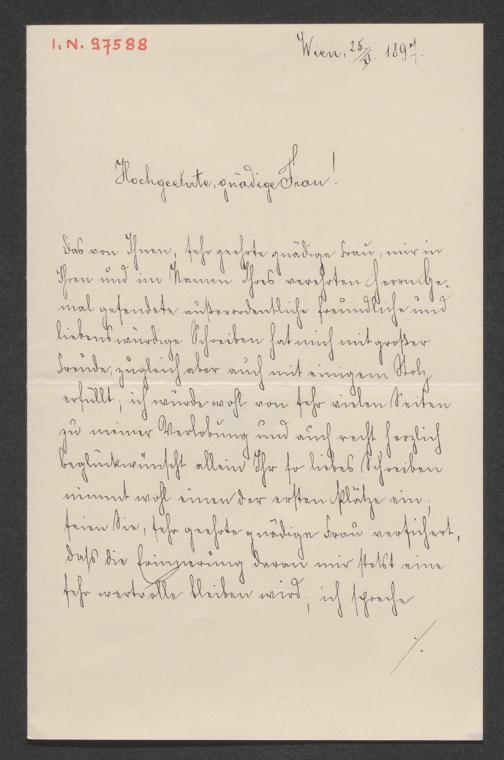 I.N. 97588
Wien, 25/XI. 1897.
Hochgeehrte, gnädige Frau!
Das von Ihnen, sehr geehrte gnädige Frau, mir in
Ihren und im Namen Ihres verehrten Herrn Ge-
mal gesendete außerordentliche freundliche und
liebenswürdige Schreiben hat mich mit großer
Freude, zugleich aber auch mit einigem Stolz
erfüllt; ich wurde wohl von sehr vielen Seiten
zu meiner Verlobung und auch recht herzlich
beglückwünscht allein Ihr so liebes Schreiben
nimmt wohl einen der ersten Plätze ein;
seien Sie, sehr geehrte gnädige Frau versichert,
dass die Erinnerung daran mir stets eine
sehr wertvolle bleiben wird; ich spreche
./.